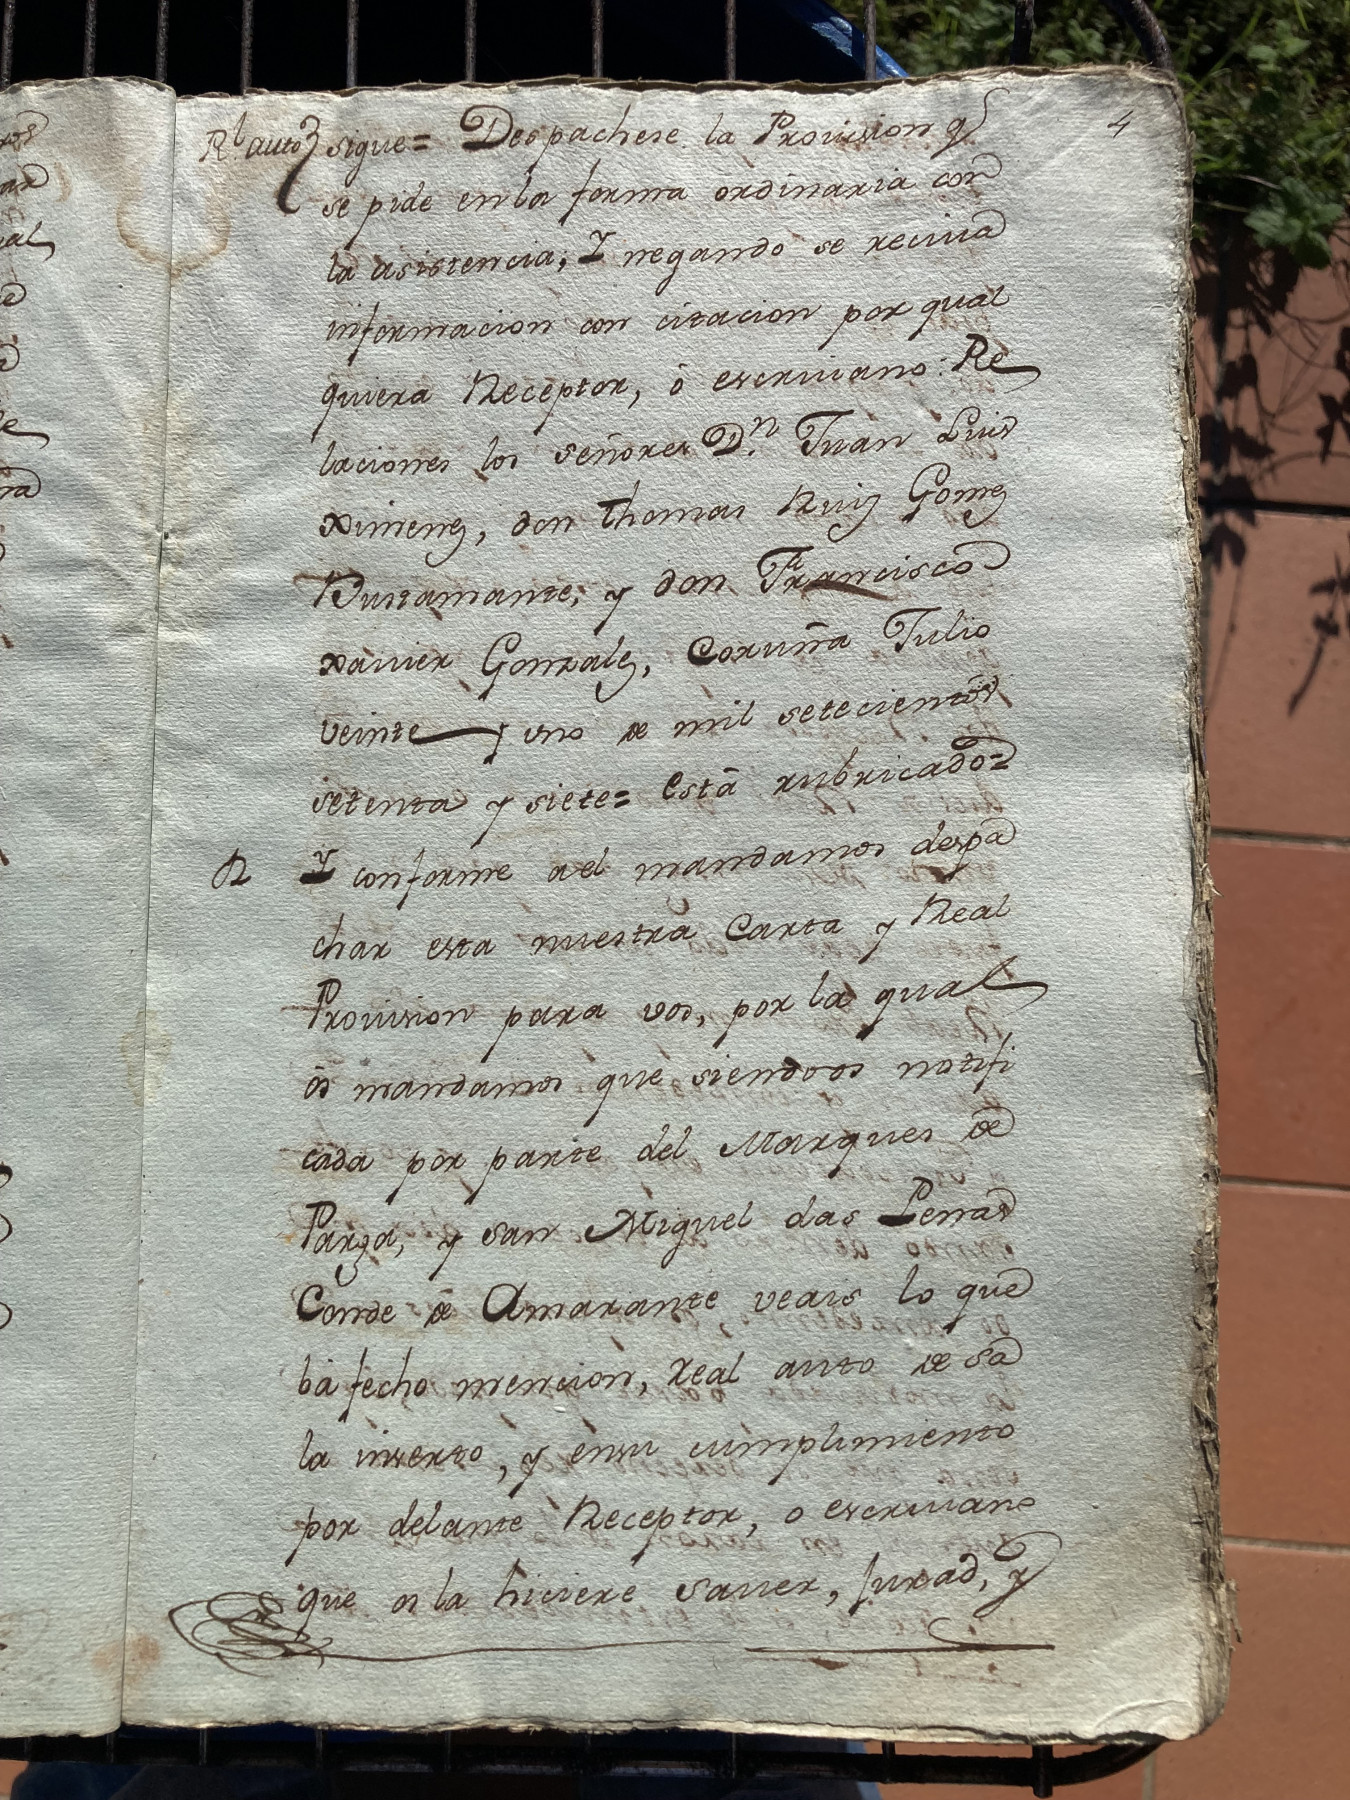 4
Rl. auto sigue= Despachese la Provision q̃
se pide en la forma ordinaria con
la asistencia, Y negando se reciua
informacion con citacion por qual
quiera Receptor, ô escriuano: Re
laciones los señores Dn. Juan Luis
Ximenez, don Thomas Ruiz Gomez
Bustamante, y don Francisco
Xauier Gonzalez, Coruña Julio
veinte y uno de mil setecientos
setenta y siete= Está rubricado=
R Y conforme a el mandamos despa
char esta nuestra Carta y Real
Provision para vos, por la qual
ós mandamos que siendoos notifi
cada por parte del Marques de
Parga, y san Miguel das Penas
Conde de Amarante veais lo que
bá fecho mencion, Real auto de sa
la inserto, y ensu cumplimiento
por delante Receptor, o escriuano
que os la hiciere sauer, Jurad, y